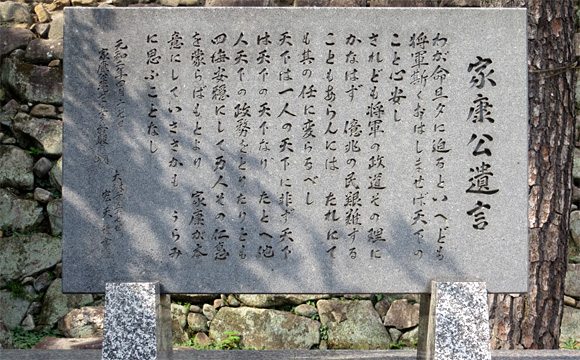 家康公遺言
わが命旦夕に迫るといへども
将軍斯く命はしませば天下の
こと心安し
されども将軍の政道その理に
かなはず 億兆の民艱難する
こともあらんには たれにて
も其の任に変らるべし
天下は一人の天下に非ず天下
は天下の天下なり たとへ他
人天下の政務をとりたりとも
四海安穏にして万人その仁恵
を蒙らばもとより 家康が本
意にしていささかも うらみ
に思ふことなし
元和二年四月十七日